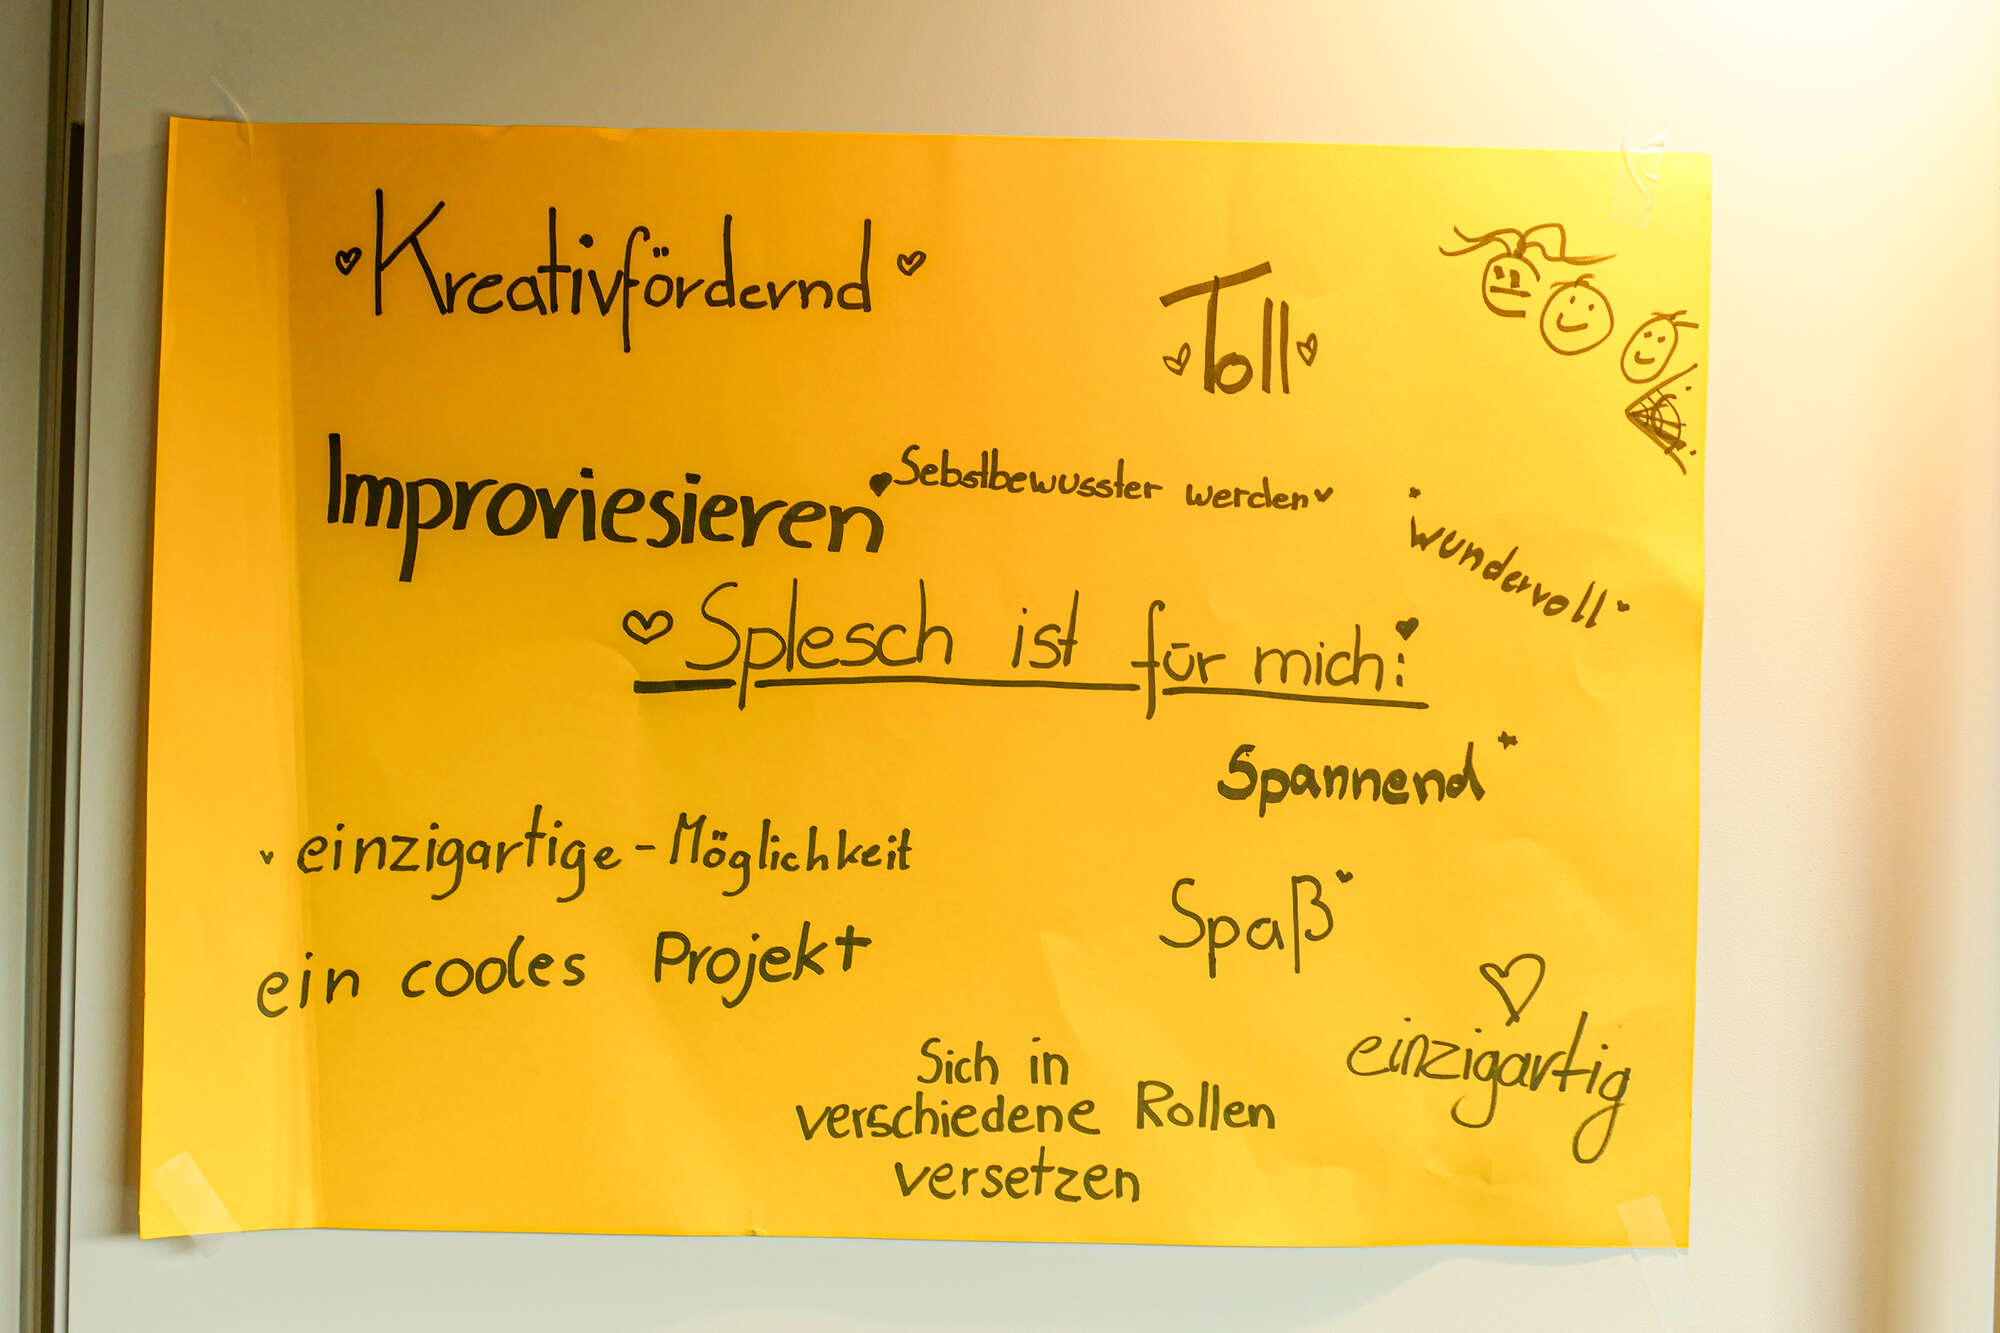 Kreativfördernd
Toll
Improviesieren
Sebstbewusster werden
wundervoll
Splesch ist für mich:
Spannend
einzigartige-Möglichkeit
Spaß
ein cooles Projekt
einzigartig
Sich in
verschiedene Rollen
versetzen